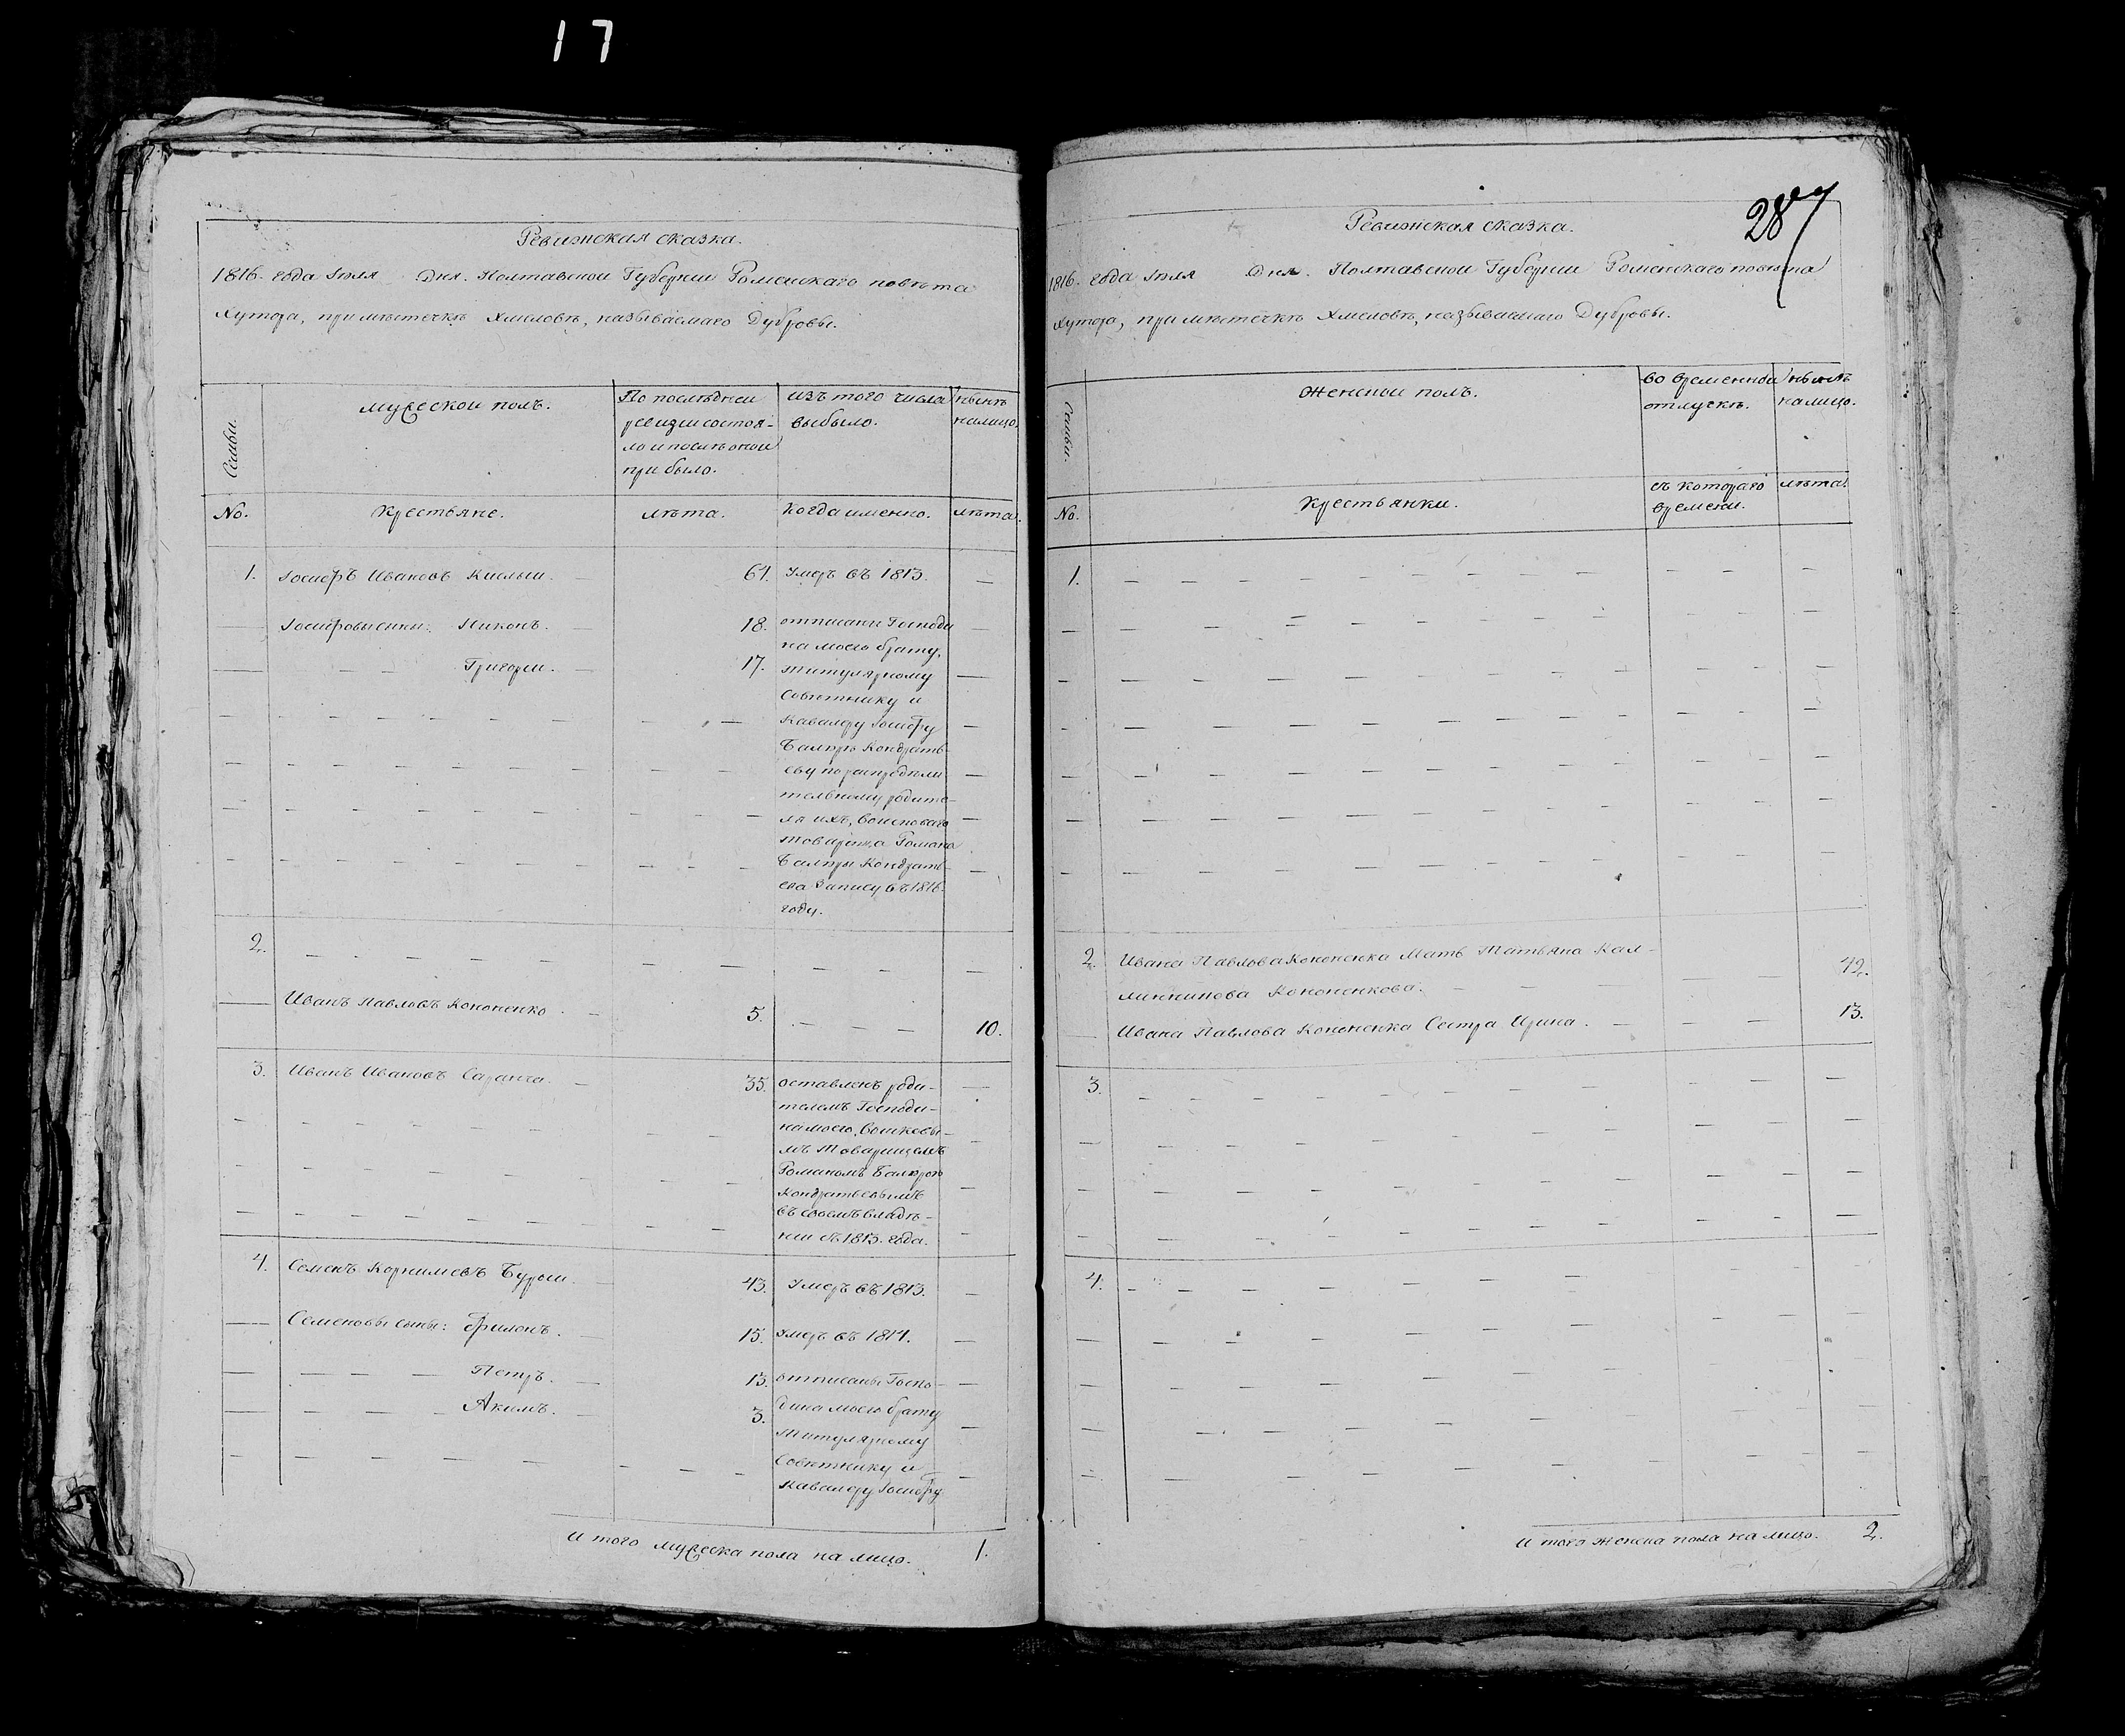 17
287
Ревижская сказка.
1816. года Iюля Дня. Полтавской Губернии Роменскаго повѣта
Хутора, при мѣстечкѣ Хмеловѣ, называемаго Дубровы.
Семьи.
мужеской полъ.
По послѣдней
ревизи состоя-
ло и послѣ оной
прибыло.
изъ того числа
выбыло.
нынѣ
налицо.
No.
Крестьяне.
лѣта.
Когда именно.
лѣта.
1. Iосифъ Ивановъ Кислый. 61. умеръ въ 1813.
Iосифовы сыны: Никонъ. 18.
Григорий. 17.
отписаны Господи
на моего брату,
титулярному
Совѣтнику и
Кавалеру Iосифу
Кондрать-
еву по распредѣли
тельному родите-
ля ихъ, войсковаго
товарища Романа
Кондрать-
ева Запису въ 1816.
году.
2.
Иванъ Павловъ Кононенко. 5. 10.
3. Иванъ Ивановъ Саранча. 35.
оставленъ роди-
телемъ Господи-
на моего, войсковы-
мъ товарищемъ
Романомъ
Кондратьевымъ
въ своемъ владѣ-
нии съ 1813. года.
4. Семенъ Корнилиевъ Бурой. 43. умеръ въ 1813.
Семеновы сыны: Филонъ. 15. умеръ въ 1814.
Петръ. 13.
Акимъ. 3.
отписаны Госпо-
дина моего брату
титулярному
Совѣтнику и
Кавалеру Iосифу
И того мужеска пола на лицо. 1.
Ревижская сказка.
1816. года Iюля Дня. Полтавской Губернии Роменскаго повѣта
Хутора, при мѣстечкѣ Хмеловѣ, называемаго Дубровы.
Семьи.
Женской полъ.
во временной
отлускѣ.
нынѣ
налицо.
No.
Крестьянки.
съ котораго
времени.
лѣта.
1.
2. Ивана Павлова Кононенка Мать Татьяна Кал-
линикова Кононенкова. 42.
Ивана Павлова Кононенка Сестра Ирина. 13.
3.
4.
И того женска пола на лицо. 2.